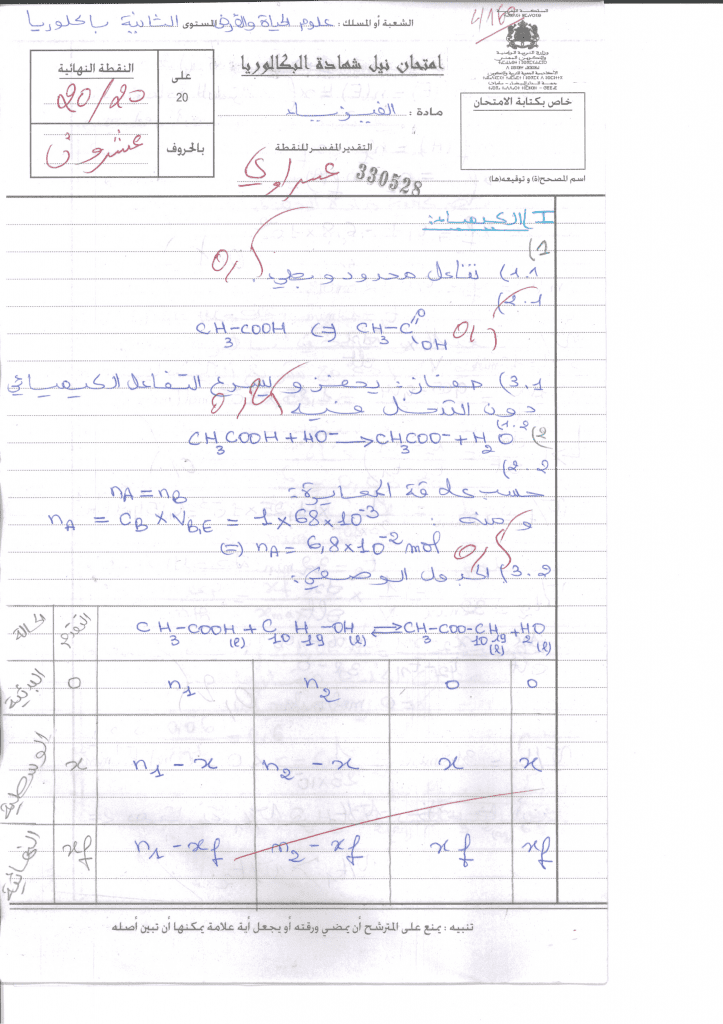 الشعبة أو المسلك : علوم الحياة والأرض المستوى الثانية باكلوريا
امتحان نيل شهادة البكالوريا
النقطة النهائية
على
20
20/20
مادة : الفيزياء
خاص بكتابة الامتحان
بالحروف
عشرون
التقدير المفسر للنقطة
330528
اسم المصحح(ة) و توقيعه(ها)
I) الكيمياء:
1)
1.1) تفاعل محدود و بطيء.
2.1)
CH3-COOH (=) CH3-C=O OH
3.1) حفاز: يحفز و يسرع التفاعل الكيميائي
دون التدخل فيه
2) 1.2)
CH3COOH + HO- → CH3COO- + H2O
2.2)
حسب علاقة المعايرة: nA = nB
ومنه : nA = CB × VB,E = 1 × 68 × 10-3
(=) nA = 6,8 × 10-2 mol
3.2) الجدول الوصفي:
الحالة التقدم CH3-COOH(l) + C10H19-OH(l) ⇌ CH3-COO-C10H19(l) + H2O(l)
البدئية 0 n1 n2 0 0
الوسطية x n1 - x n2 - x x x
النهائية xf n1 - xf n2 - xf xf xf
تنبيه : يمنع على المترشح أن يمضي ورقته أو يجعل أية علامة يمكنها أن تبين أصله